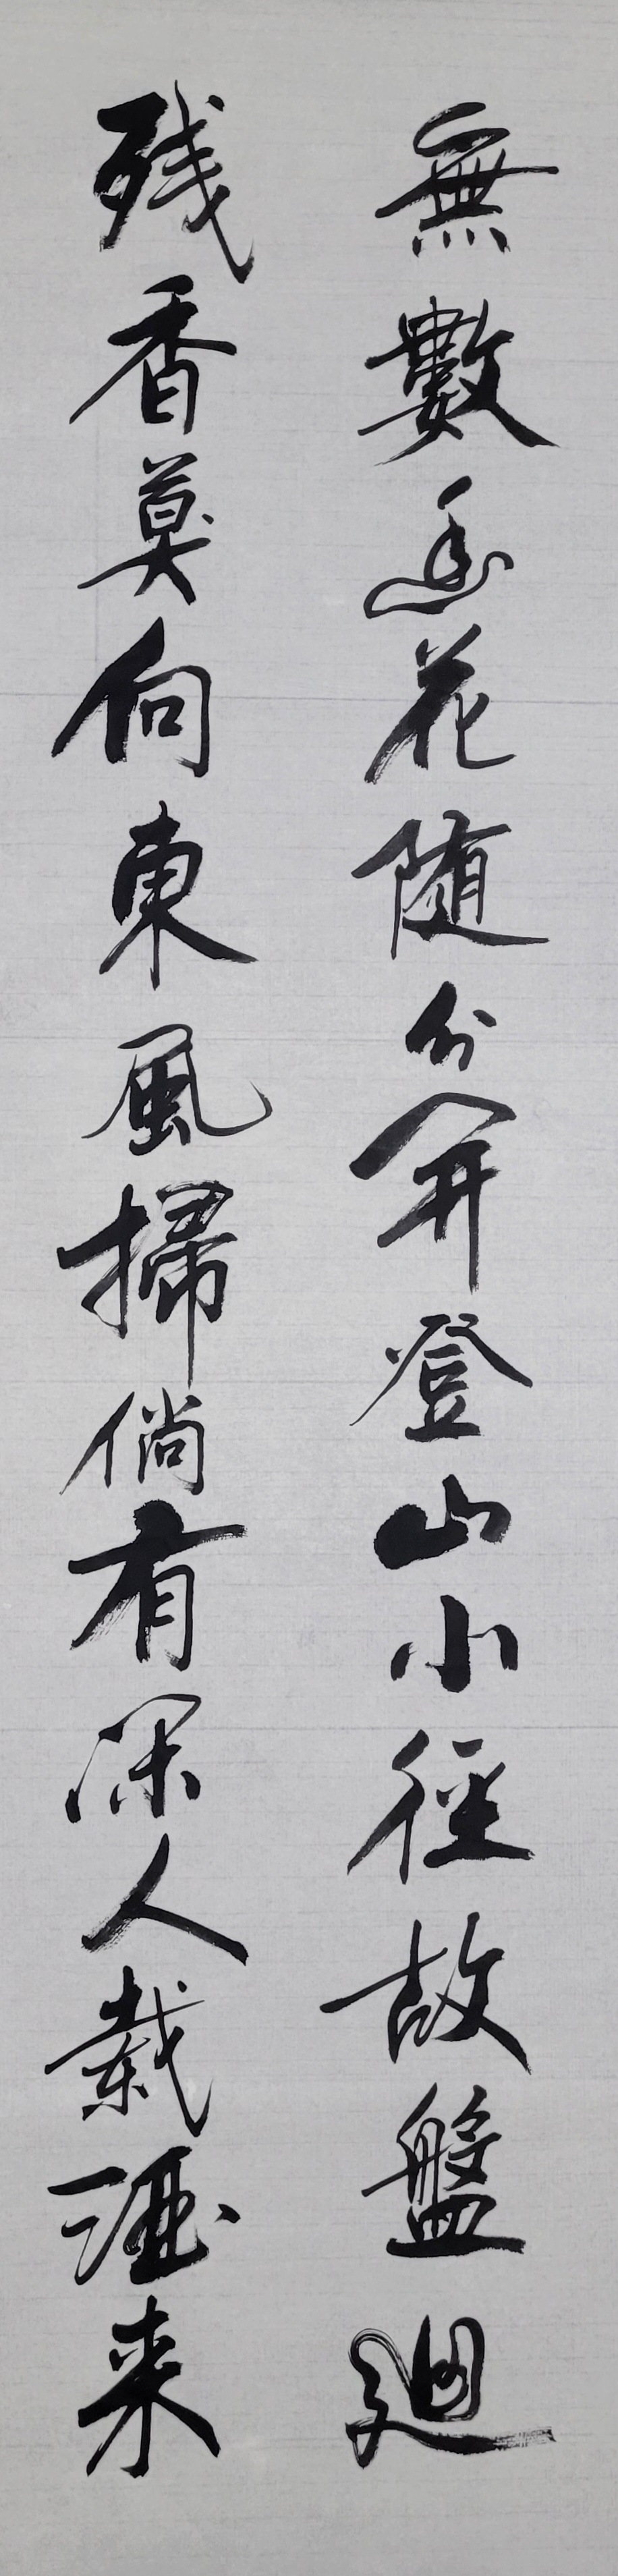 無數幽花随分開登山小徑故盤廻
残香莫向東風掃倘有深人載酒来